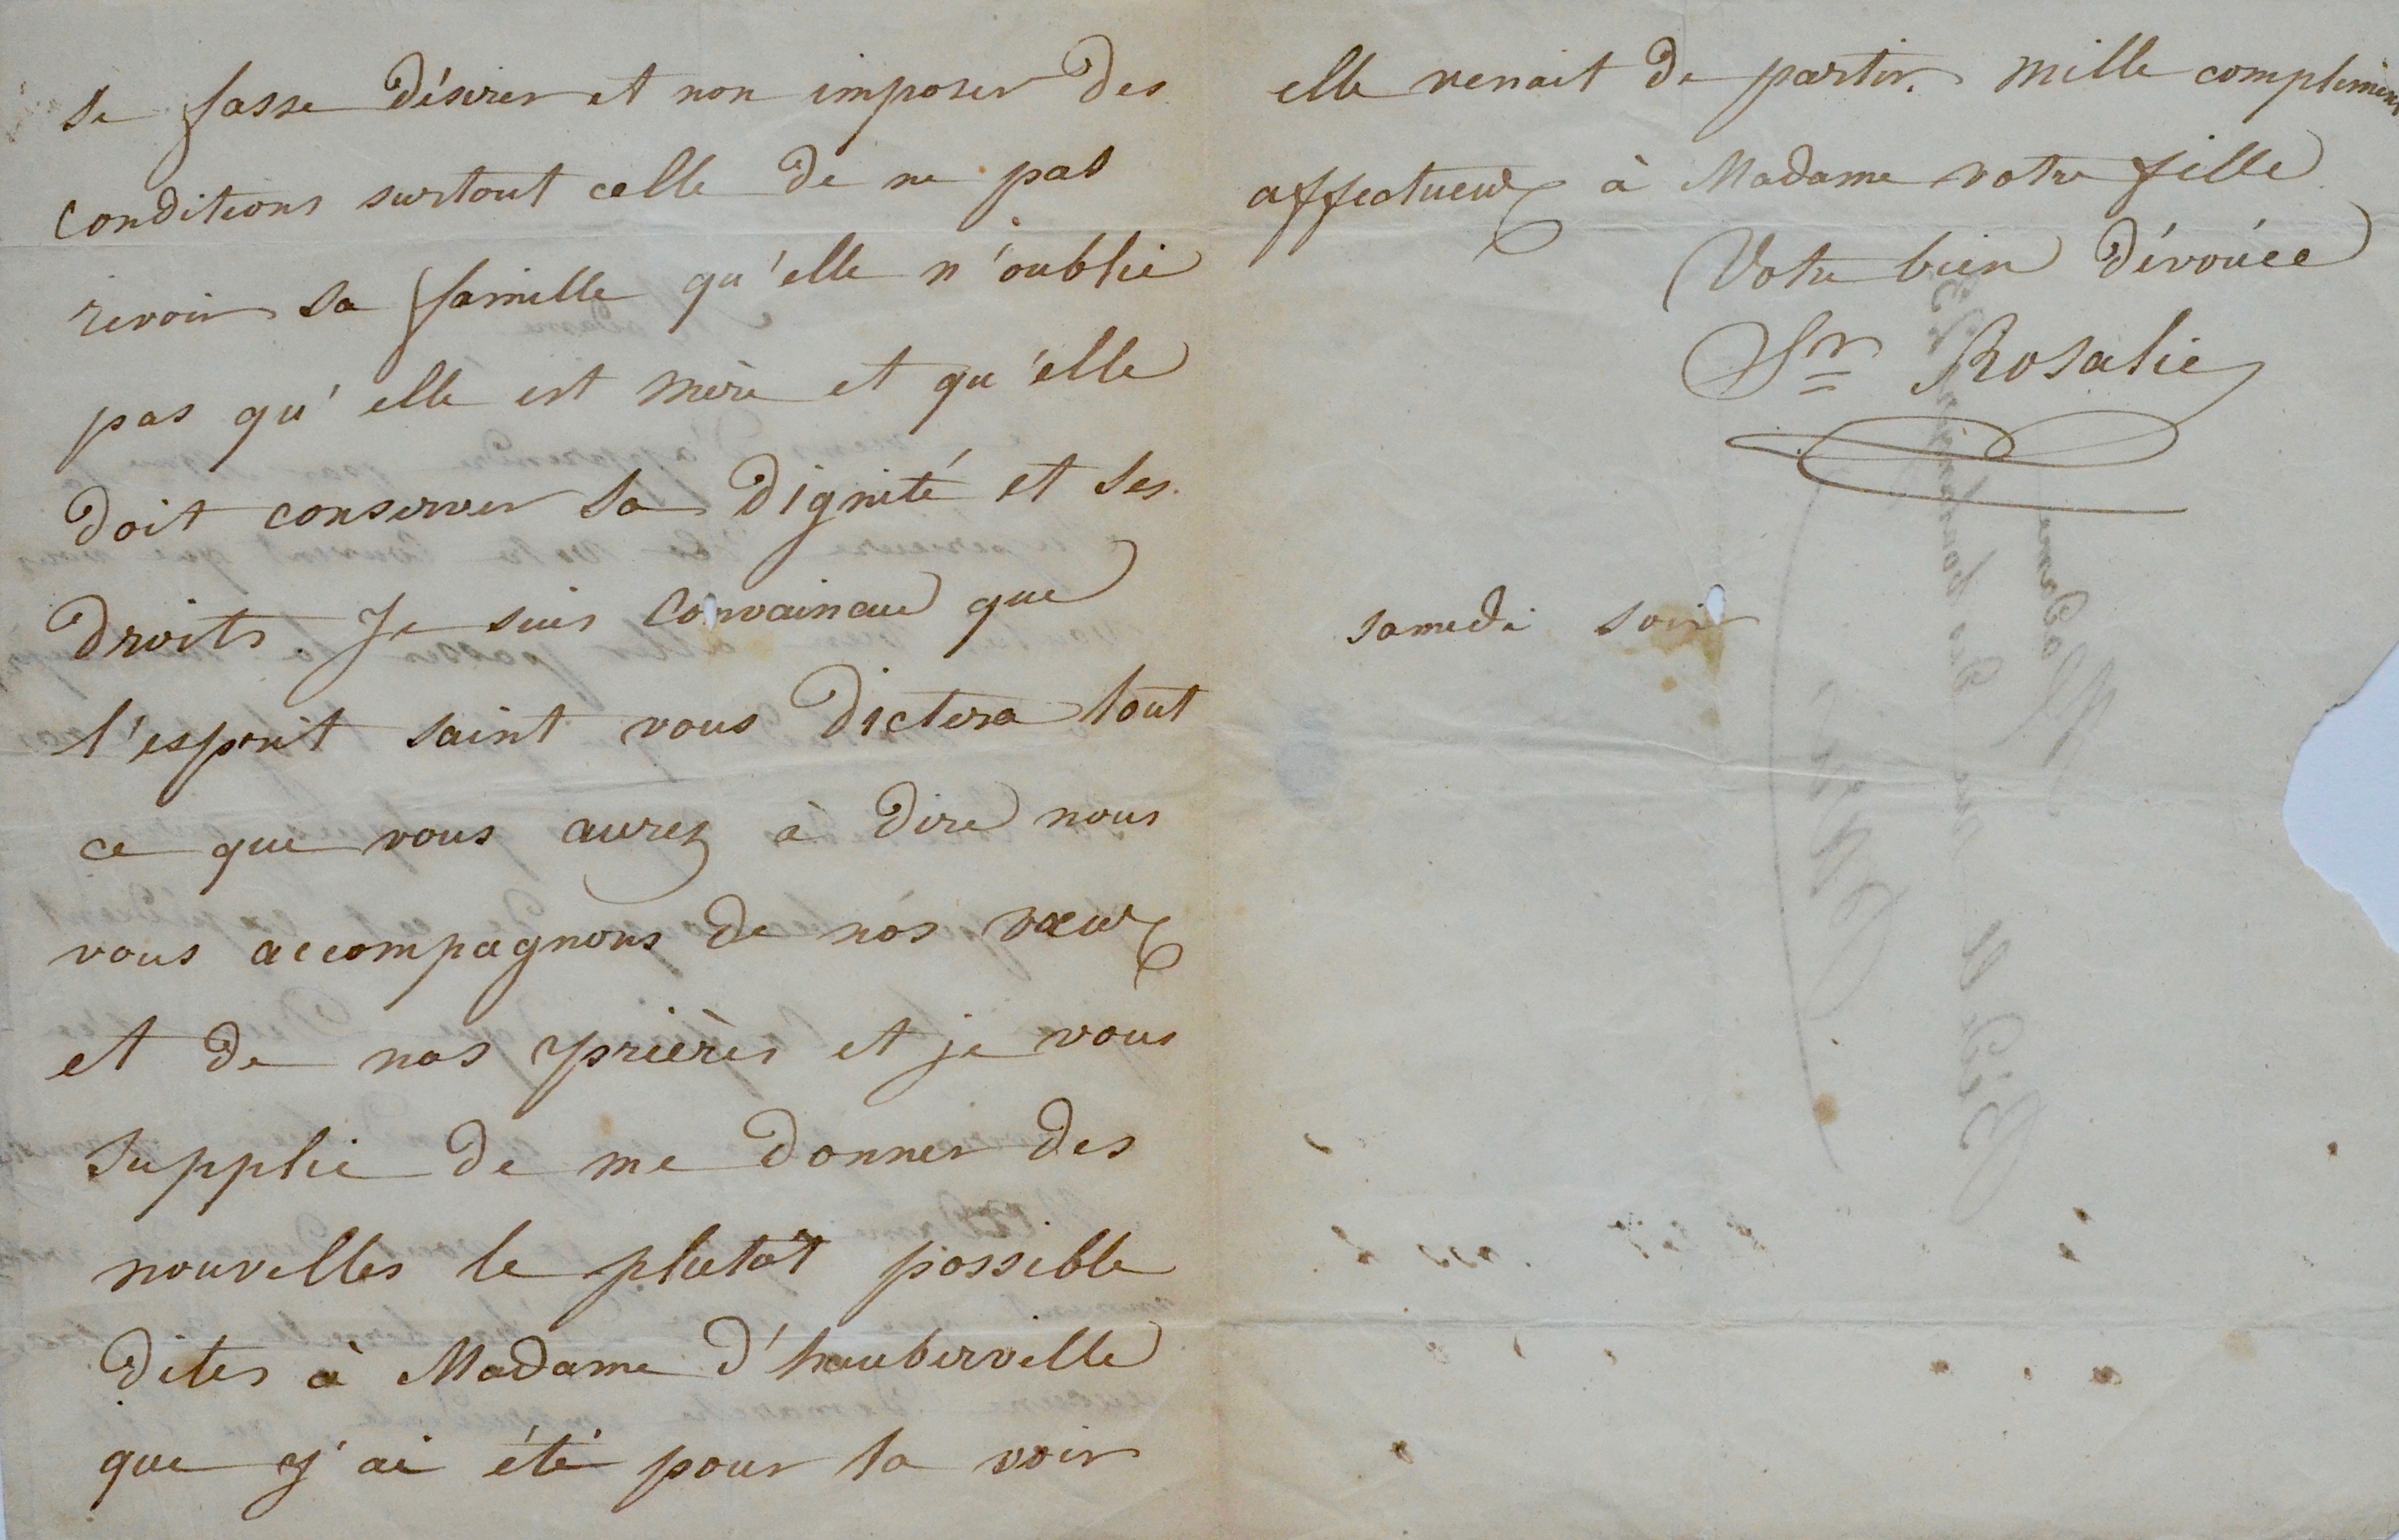 se fasse désirer et non imposer des
conditions surtout celle de ne pas
revoir sa famille qu'elle n'oublie
pas qu'elle est mère et qu'elle
doit conserver sa dignité et ses
droits. Je suis convaincue que
l'esprit saint vous dictera tout
ce que vous aurez à dire nous
vous accompagnons de nos vœux
et de nos prières et je vous
supplie de me donner des
nouvelles le plutôt possible
dites à Madame d'hauberville
que j'ai été pour la voir
elle venait de partir. mille complimens
affectueux à Madame votre fille
Votre bien dévouée
Sr Rosalie
samedi soir